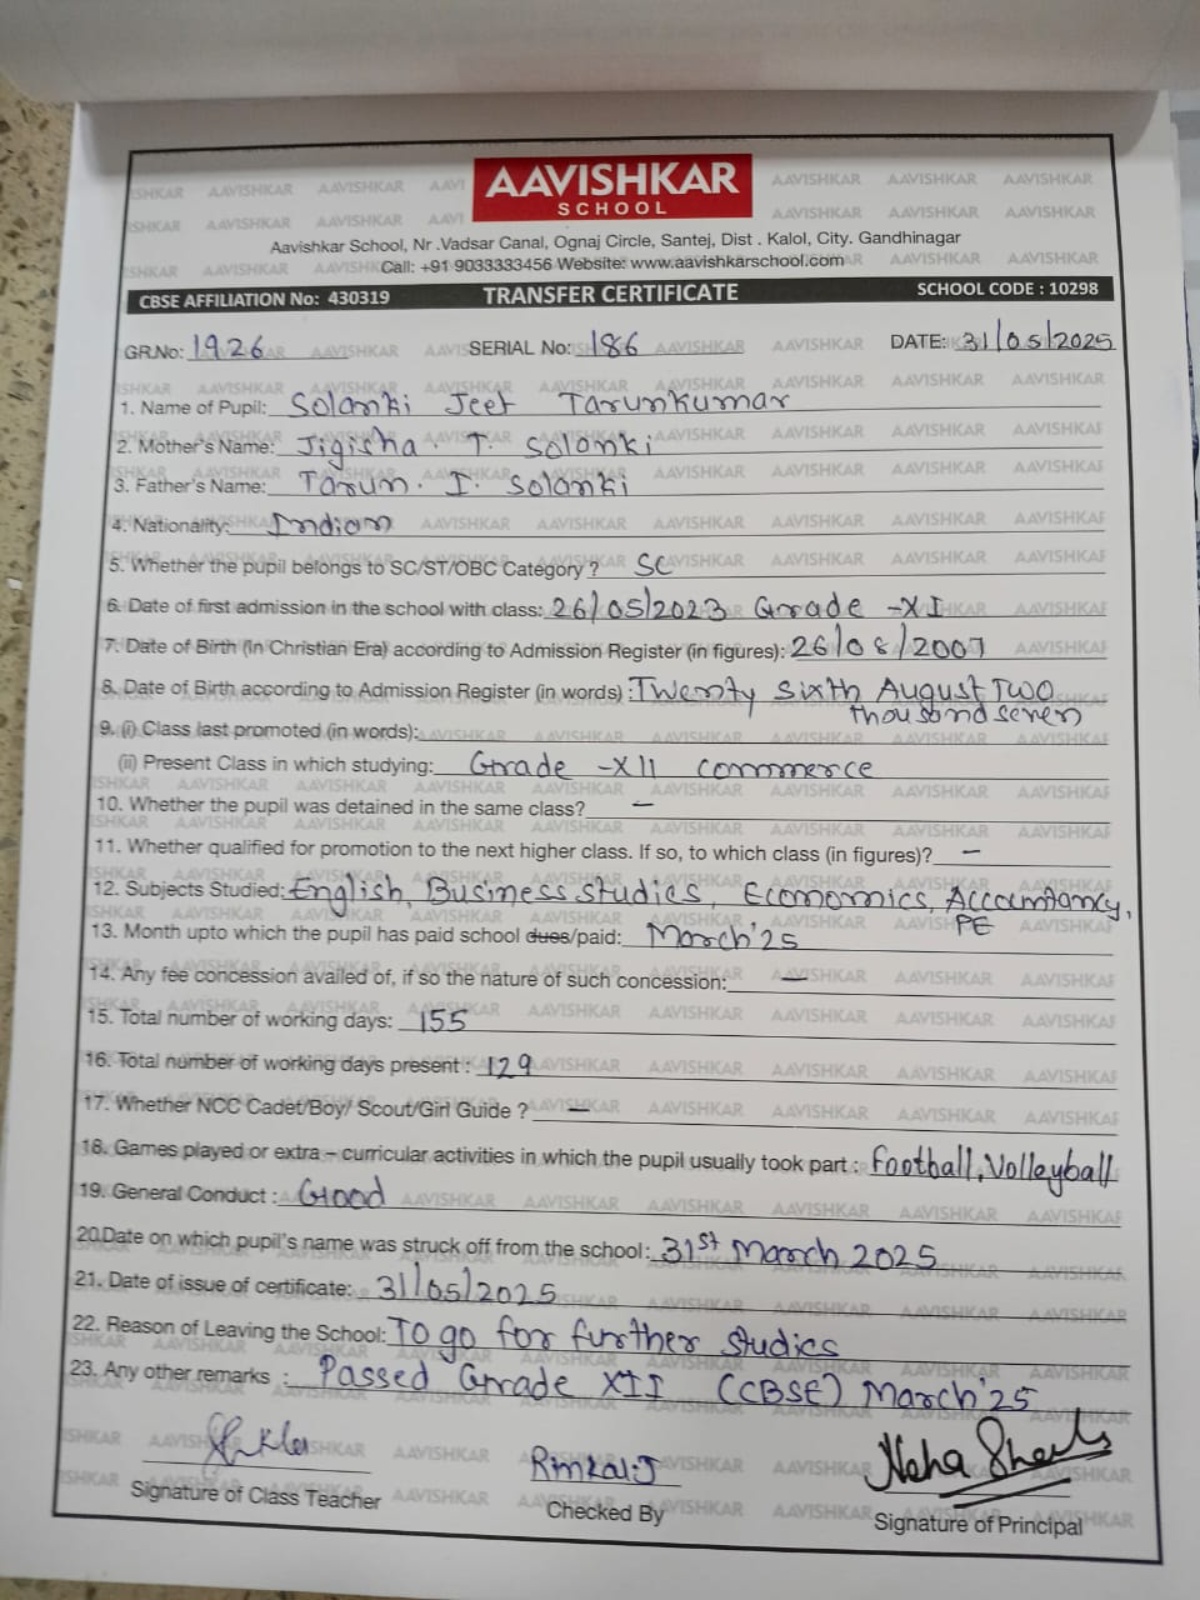 AAVISHKAR
SCHOOL
Aavishkar School, Nr .Vadsar Canal, Ognaj Circle, Santej, Dist . Kalol, City. Gandhinagar
Call: +91 9033333456 Website: www.aavishkarschool.com
CBSE AFFILIATION No: 430319 TRANSFER CERTIFICATE SCHOOL CODE : 10298
GR.No: 1926 SERIAL No: 186 DATE: 31/05/2025
1. Name of Pupil: Solanki Jeet Tarunkumar
2. Mother's Name: Jigisha. T. Solanki
3. Father's Name: Tarun. I. Solanki
4. Nationality: Indian
5. Whether the pupil belongs to SC/ST/OBC Category ? SC
6. Date of first admission in the school with class: 26/05/2023 Grade -XI
7. Date of Birth (in Christian Era) according to Admission Register (in figures): 26/08/2007
8. Date of Birth according to Admission Register (in words) : Twenty sixth August Two
thousand seven
9. (i) Class last promoted (in words):
(ii) Present Class in which studying: Grade -XII commerce
10. Whether the pupil was detained in the same class? –
11. Whether qualified for promotion to the next higher class. If so, to which class (in figures)? –
12. Subjects Studied: English, Business studies, Economics, Accountancy,
PE
13. Month upto which the pupil has paid school dues/paid: March'25
14. Any fee concession availed of, if so the nature of such concession: –
15. Total number of working days: 155
16. Total number of working days present : 129
17. Whether NCC Cadet/Boy/ Scout/Girl Guide ? –
18. Games played or extra – curricular activities in which the pupil usually took part : Football, Volleyball
19. General Conduct : Good
20.Date on which pupil's name was struck off from the school: 31st March 2025
21. Date of issue of certificate: 31/05/2025
22. Reason of Leaving the School: To go for further studies
23. Any other remarks : Passed Grade XII (CBSE) March'25
Rinkal.J Neha
Signature of Class Teacher Checked By Signature of Principal